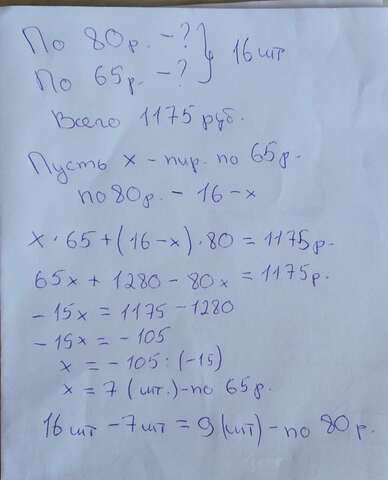 По 80р. - ?
По 65р. - ? } 16 шт
Всего 1175 руб.
Пусть x - пир. по 65р.
по 80р. - 16 - x
x · 65 + (16 - x) · 80 = 1175р.
65x + 1280 - 80x = 1175р.
- 15x = 1175 - 1280
- 15x = - 105
x = - 105 : (-15)
x = 7 (шт.) - по 65р.
16шт - 7шт = 9 (шт) - по 80р.